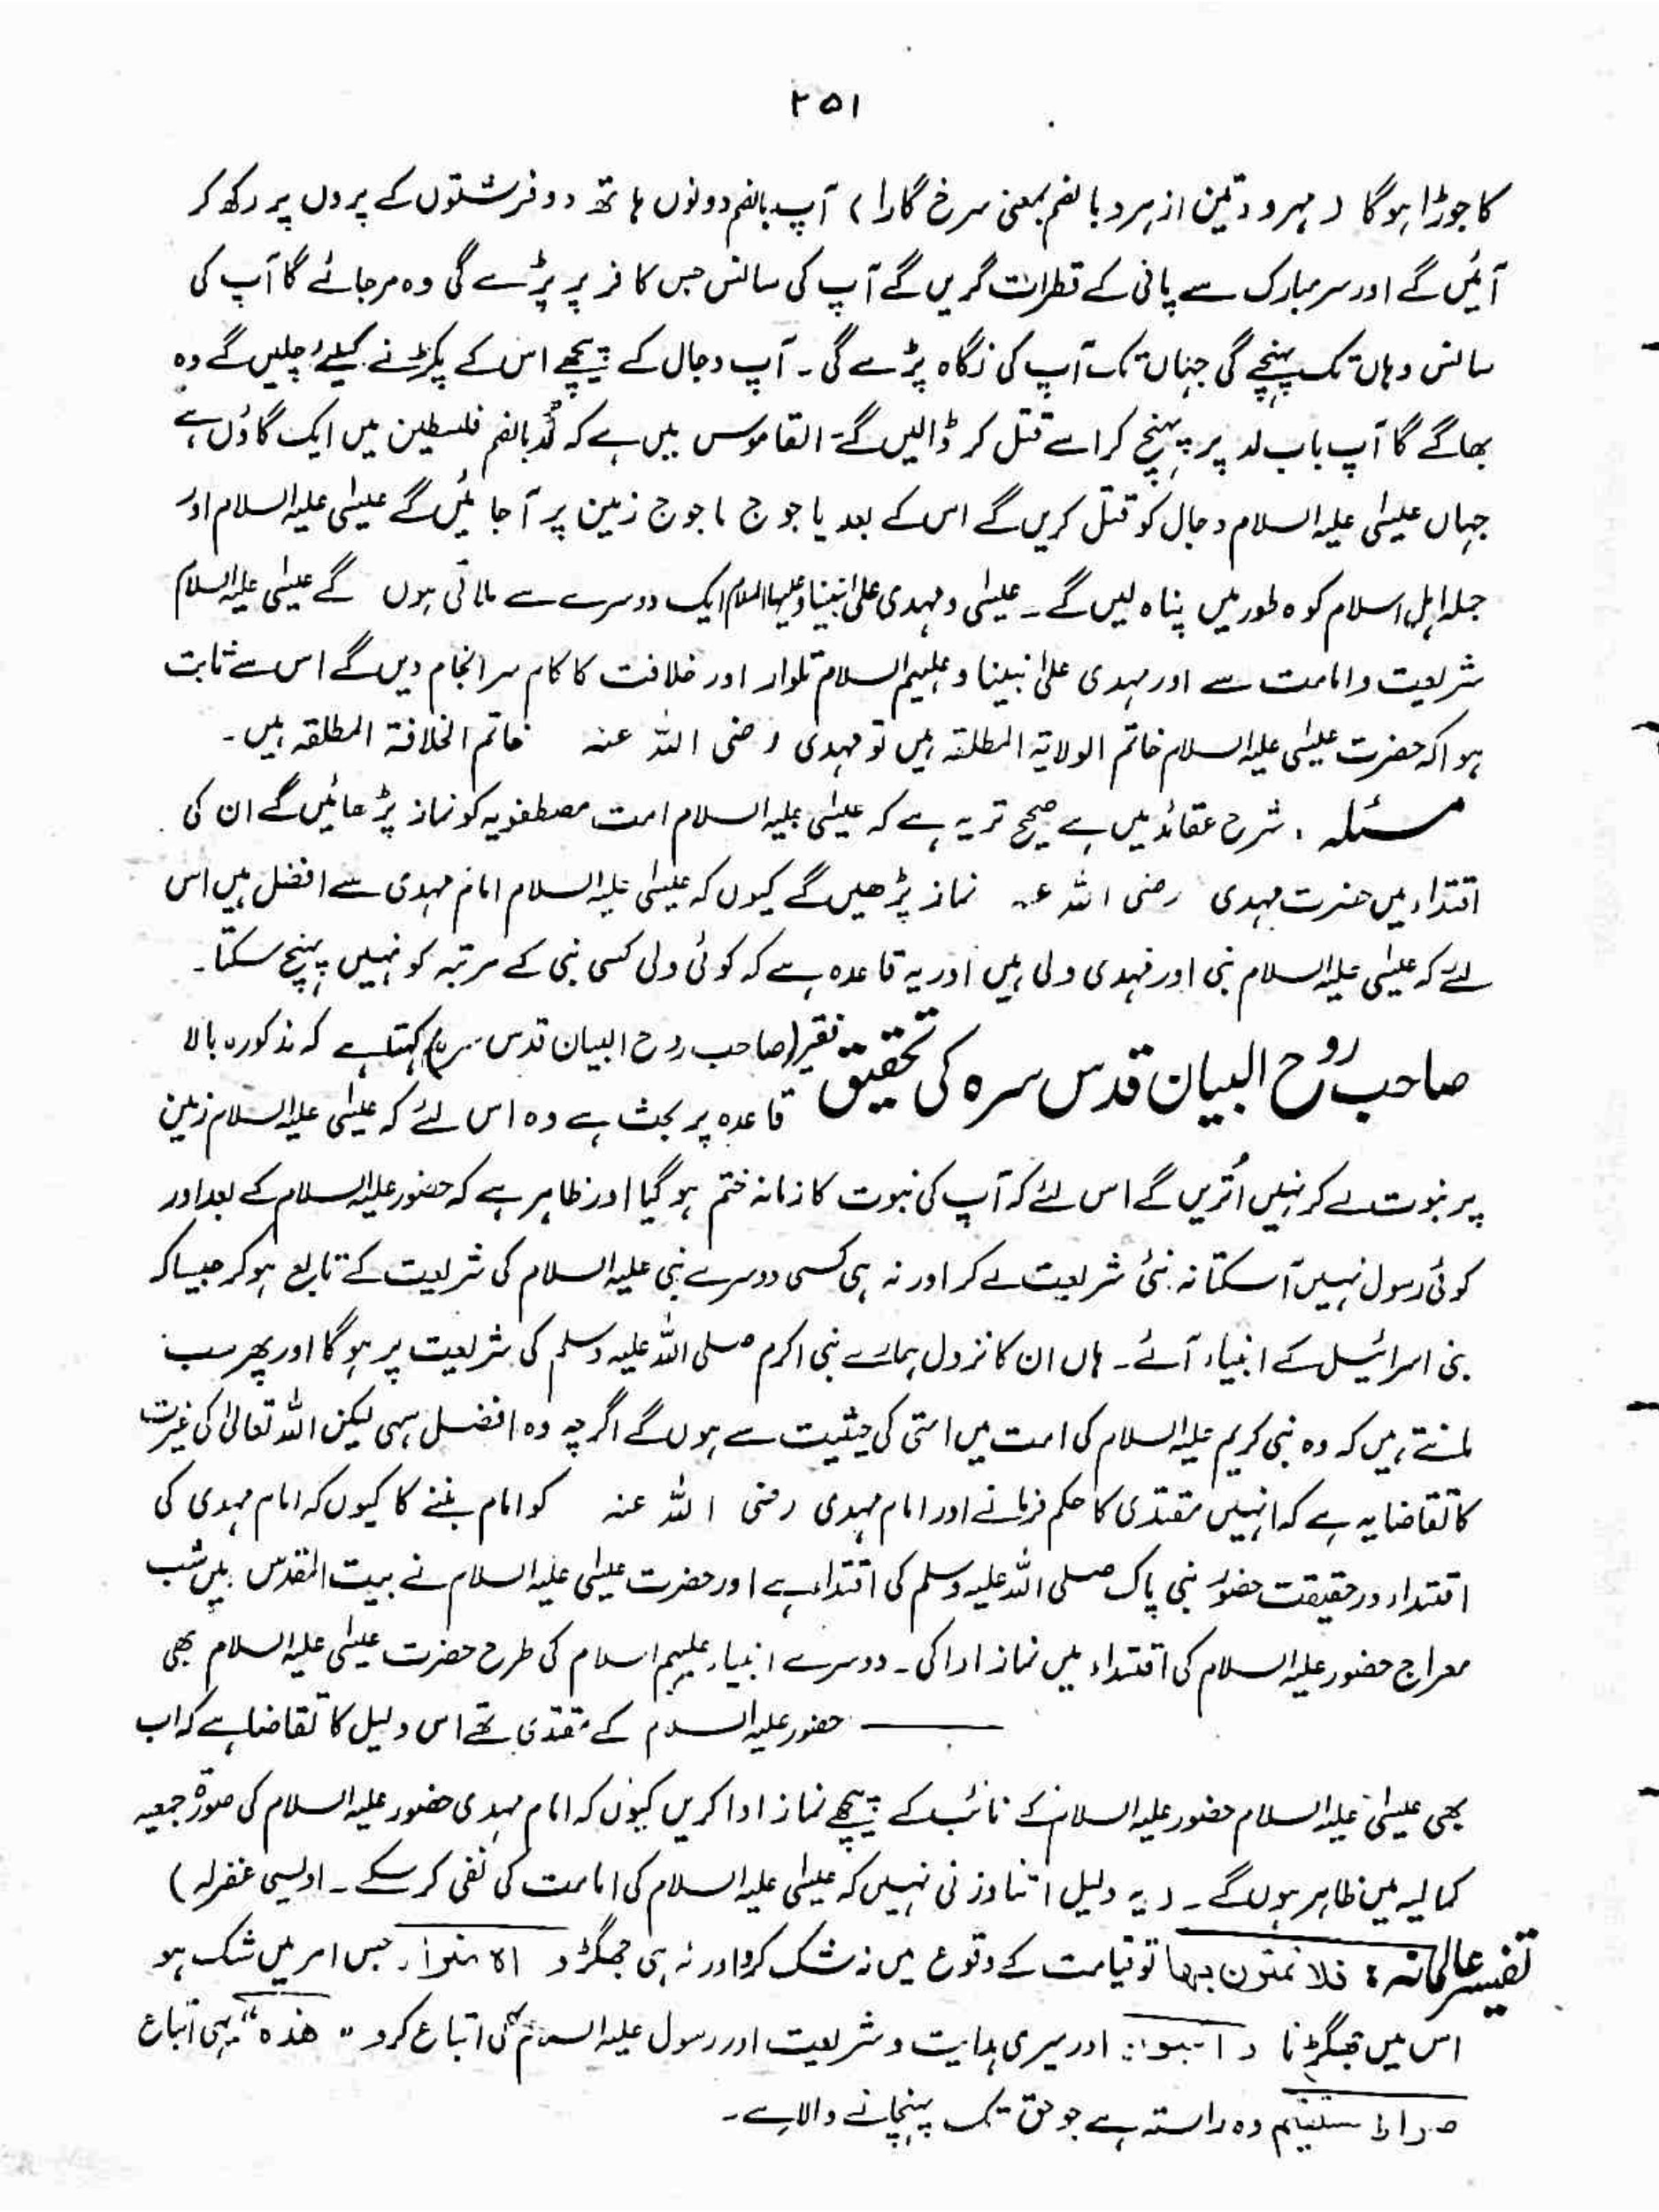 ۲۵۱
کا جوڑا ہوگا (مہرودتین از ہرد بالضم بمعنی سرخ گارا) آپ دونوں ہاتھ دو فرشتوں کے پروں پر رکھ کر
آئیں گے اور سر مبارک سے پانی کے قطرات گریں گے آپ کی سانس جس کافر پر پڑے گی وہ مرجائے گا آپ کی
سانس وہاں تک پہنچے گی جہاں تک آپ کی نگاہ پڑے گی ۔ آپ دجال کے پیچھے اس کے پکڑنے کیلئے چلیں گے وہ
بھاگے گا آپ باب لد پر پہنچ کر اسے قتل کر ڈالیں گے ۔ القاموس میں ہے کہ لُد بالضم فلسطین میں ایک گاؤں ہے
جہاں عیسٰی علیہ السلام دجال کو قتل کریں گے اس کے بعد یاجوج ماجوج زمین پر آجائیں گے عیسٰی علیہ السلام اور
جملہ اہل اسلام کوہ طور میں پناہ لیں گے ۔ عیسٰی و مہدی علیٰ نبینا وعلیہما السلام ایک دوسرے سے ملاقی ہوں گے عیسٰی علیہ السلام
شریعت و امامت سے اور مہدی علیٰ نبینا و علیہم السلام تلوار اور خلافت کا کام سرانجام دیں گے اس سے ثابت
ہوا کہ حضرت عیسٰی علیہ السلام خاتم الولایۃ المطلقہ ہیں تو مہدی رضی اللہ عنہ خاتم الخلافۃ المطلقہ ہیں ۔
مسئلہ ، شرح عقائد میں ہے صحیح تر یہ ہے کہ عیسٰی علیہ السلام امت مصطفویہ کو نماز پڑھائیں گے ان کی
اقتداء میں حضرت مہدی رضی اللہ عنہ نماز پڑھیں گے کیوں کہ عیسٰی علیہ السلام امام مہدی سے افضل ہیں اس
لئے کہ عیسٰی علیہ السلام نبی اور مہدی ولی ہیں اور یہ قاعدہ ہے کہ کوئی ولی کسی نبی کے مرتبہ کو نہیں پہنچ سکتا ۔
صاحب روح البیان قدس سرہ کی تحقیق فقیر (صاحب روح البیان قدس سرہ) کہتا ہے کہ مذکورہ بالا
قاعدہ پر بحث ہے وہ اس لئے کہ عیسٰی علیہ السلام زمین
پر نبوت لے کر نہیں اُتریں گے اس لئے کہ آپ کی نبوت کا زمانہ ختم ہو گیا اور ظاہر ہے کہ حضور علیہ السلام کے بعد اور
کوئی رسول نہیں آسکتا نہ نئی شریعت لے کر اور نہ ہی کسی دوسرے نبی علیہ السلام کی شریعت کے تابع ہو کر جیسا کہ
بنی اسرائیل کے انبیاء آئے ۔ ہاں ان کا نزول ہمارے نبی اکرم صلی اللہ علیہ وسلم کی شریعت پر ہوگا اور پھر سب
مانتے ہیں کہ وہ نبی کریم علیہ السلام کی امت میں امتی کی حیثیت سے ہوں گے اگرچہ وہ افضل سہی لیکن اللہ تعالیٰ کی غیرت
کا تقاضا یہ ہے کہ انہیں مقتدی کا حکم فرمائے اور امام مہدی رضی اللہ عنہ کو امام بننے کا کیوں کہ امام مہدی کی
اقتداء درحقیقت حضور نبی پاک صلی اللہ علیہ وسلم کی اقتداء ہے اور حضرت عیسٰی علیہ السلام نے بیت المقدس میں شب
معراج حضور علیہ السلام کی اقتداء میں نماز ادا کی ۔ دوسرے انبیاء علیہم اسلام کی طرح حضرت عیسٰی علیہ السلام بھی
حضور علیہ السلام کے مقتدی تھے اس دلیل کا تقاضا ہے کہ اب
بھی عیسٰی علیہ السلام حضور علیہ السلام کے نائب کے پیچھے نماز ادا کریں کیوں کہ امام مہدی حضور علیہ السلام کی صورۃ جمعیہ
کمالیہ میں ظاہر ہوں گے ۔ (یہ دلیل اتنا وزنی نہیں کہ عیسٰی علیہ السلام کی امامت کی نفی کر سکے ۔ اویسی غفرلہ)
تفسیر عالمانہ : فلا تمترن بہا تو قیامت کے وقوع میں نہ شک کرو اور نہ ہی جھگڑو جس امر میں شک ہو
اس میں جھگڑنا اور میری ہدایت و شریعت اور رسول علیہ السلام کی اتباع کرو " ھذہ " یہی اتباع
صراط مستقیم وہ راستہ ہے جو حق تک پہنچانے والا ہے ۔